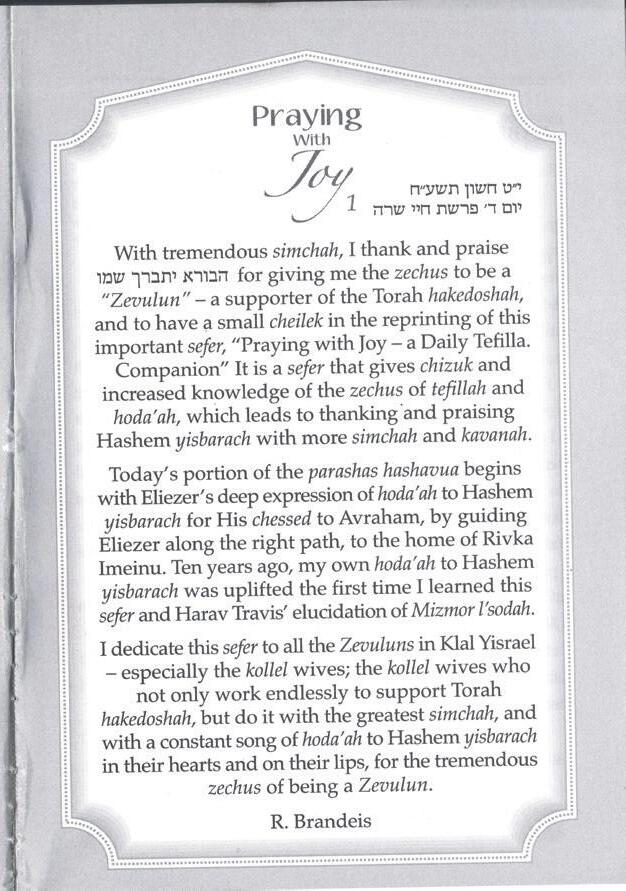 Praying
With
Joy
1
י״ט חשון תשע״ח
יום ד׳ פרשת חיי שרה
With tremendous simchah, I thank and praise
הבורא יתברך שמו for giving me the zechus to be a
“Zevulun” – a supporter of the Torah hakedoshah,
and to have a small cheilek in the reprinting of this
important sefer, “Praying with Joy – a Daily Tefilla.
Companion” It is a sefer that gives chizuk and
increased knowledge of the zechus of tefillah and
hoda’ah, which leads to thanking and praising
Hashem yisbarach with more simchah and kavanah.
Today’s portion of the parashas hashavua begins
with Eliezer’s deep expression of hoda’ah to Hashem
yisbarach for His chessed to Avraham, by guiding
Eliezer along the right path, to the home of Rivka
Imeinu. Ten years ago, my own hoda’ah to Hashem
yisbarach was uplifted the first time I learned this
sefer and Harav Travis’ elucidation of Mizmor l’sodah.
I dedicate this sefer to all the Zevuluns in Klal Yisrael
– especially the kollel wives; the kollel wives who
not only work endlessly to support Torah
hakedoshah, but do it with the greatest simchah, and
with a constant song of hoda’ah to Hashem yisbarach
in their hearts and on their lips, for the tremendous
zechus of being a Zevulun.
R. Brandeis